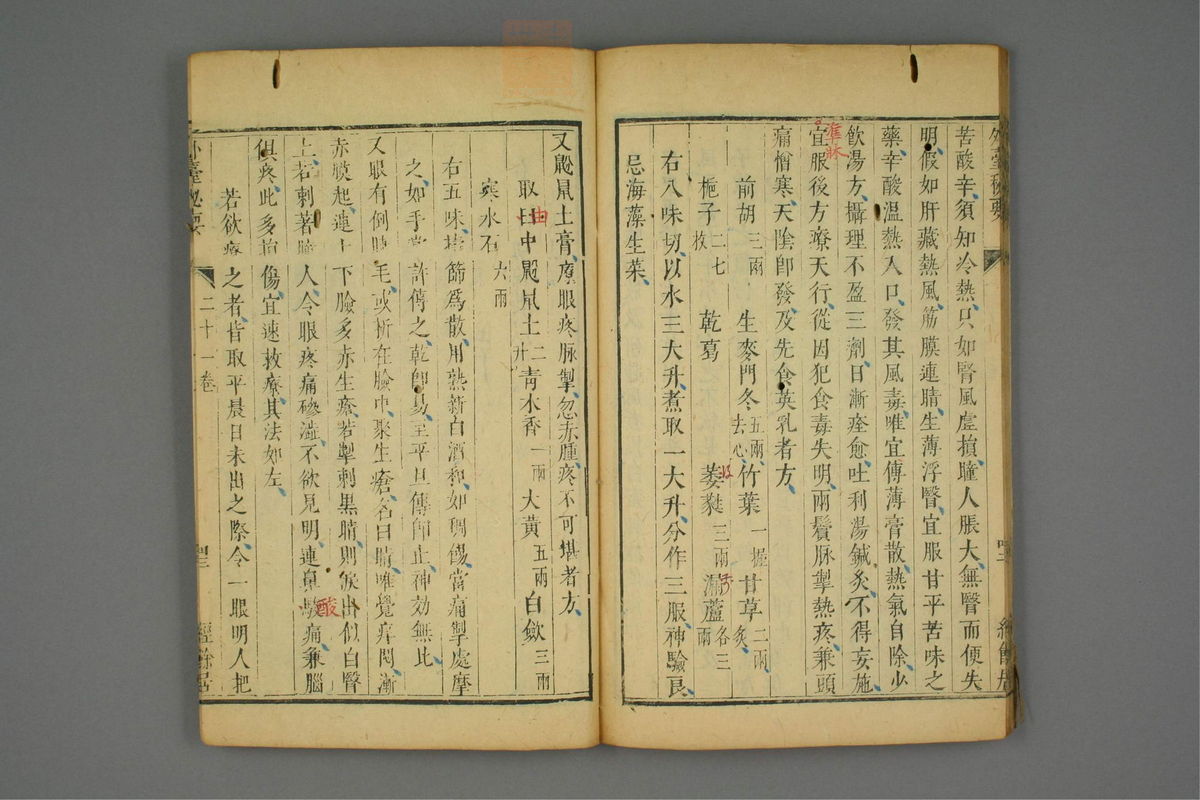 苦酸辛須知冷熱只如腎風虛損瞳人脹大無瞖而便失
明假如肝藏熱風筋膜連睛生薄浮瞖宜服甘平苦味之
藥辛酸溫熱入口發其風毒唯宜傅薄膏散熱氣自除少
飲湯方攝理不盈三劑日漸痊愈吐利湯鍼灸不得妄施
宜服後方療天行從因犯食毒失明兩鬢脉掣熱疼兼頭
痛憎寒天陰卽發及先食英乳者方
前胡三兩 生麥門冬五兩去心 竹葉一握 甘草二兩炙
梔子二七枚 乾葛 萎蕤三兩 漏蘆各三兩
右八味切以水三大升煮取一大升分作三服神驗艮
忌海藻生菜
又鼹鼠土膏療眼疼脉掣忽赤腫疼不可堪者方
取田中鼹鼠土二升 靑木香一兩 大黃五兩 白斂三兩
寒水石六兩
右五味擣篩爲散用熟新白酒和如稠餳當痛掣處摩
之如手掌許傅之乾卽易至平旦傅卽止神効無比
又眼有倒睫毛或折在臉中聚生瘡名曰睛唯覺痒悶漸
赤膜起連上下臉多赤生瘡若掣刺黑睛則淚出似白瞖
上若刺著瞳人令眼疼痛磣澁不欲見明連鼻酸痛兼腦
俱疼此多損傷宜速救療其法如左
若欲療之者皆取平晨日未出之際令一眼明人把
外臺秘要
二十一卷
經餘居